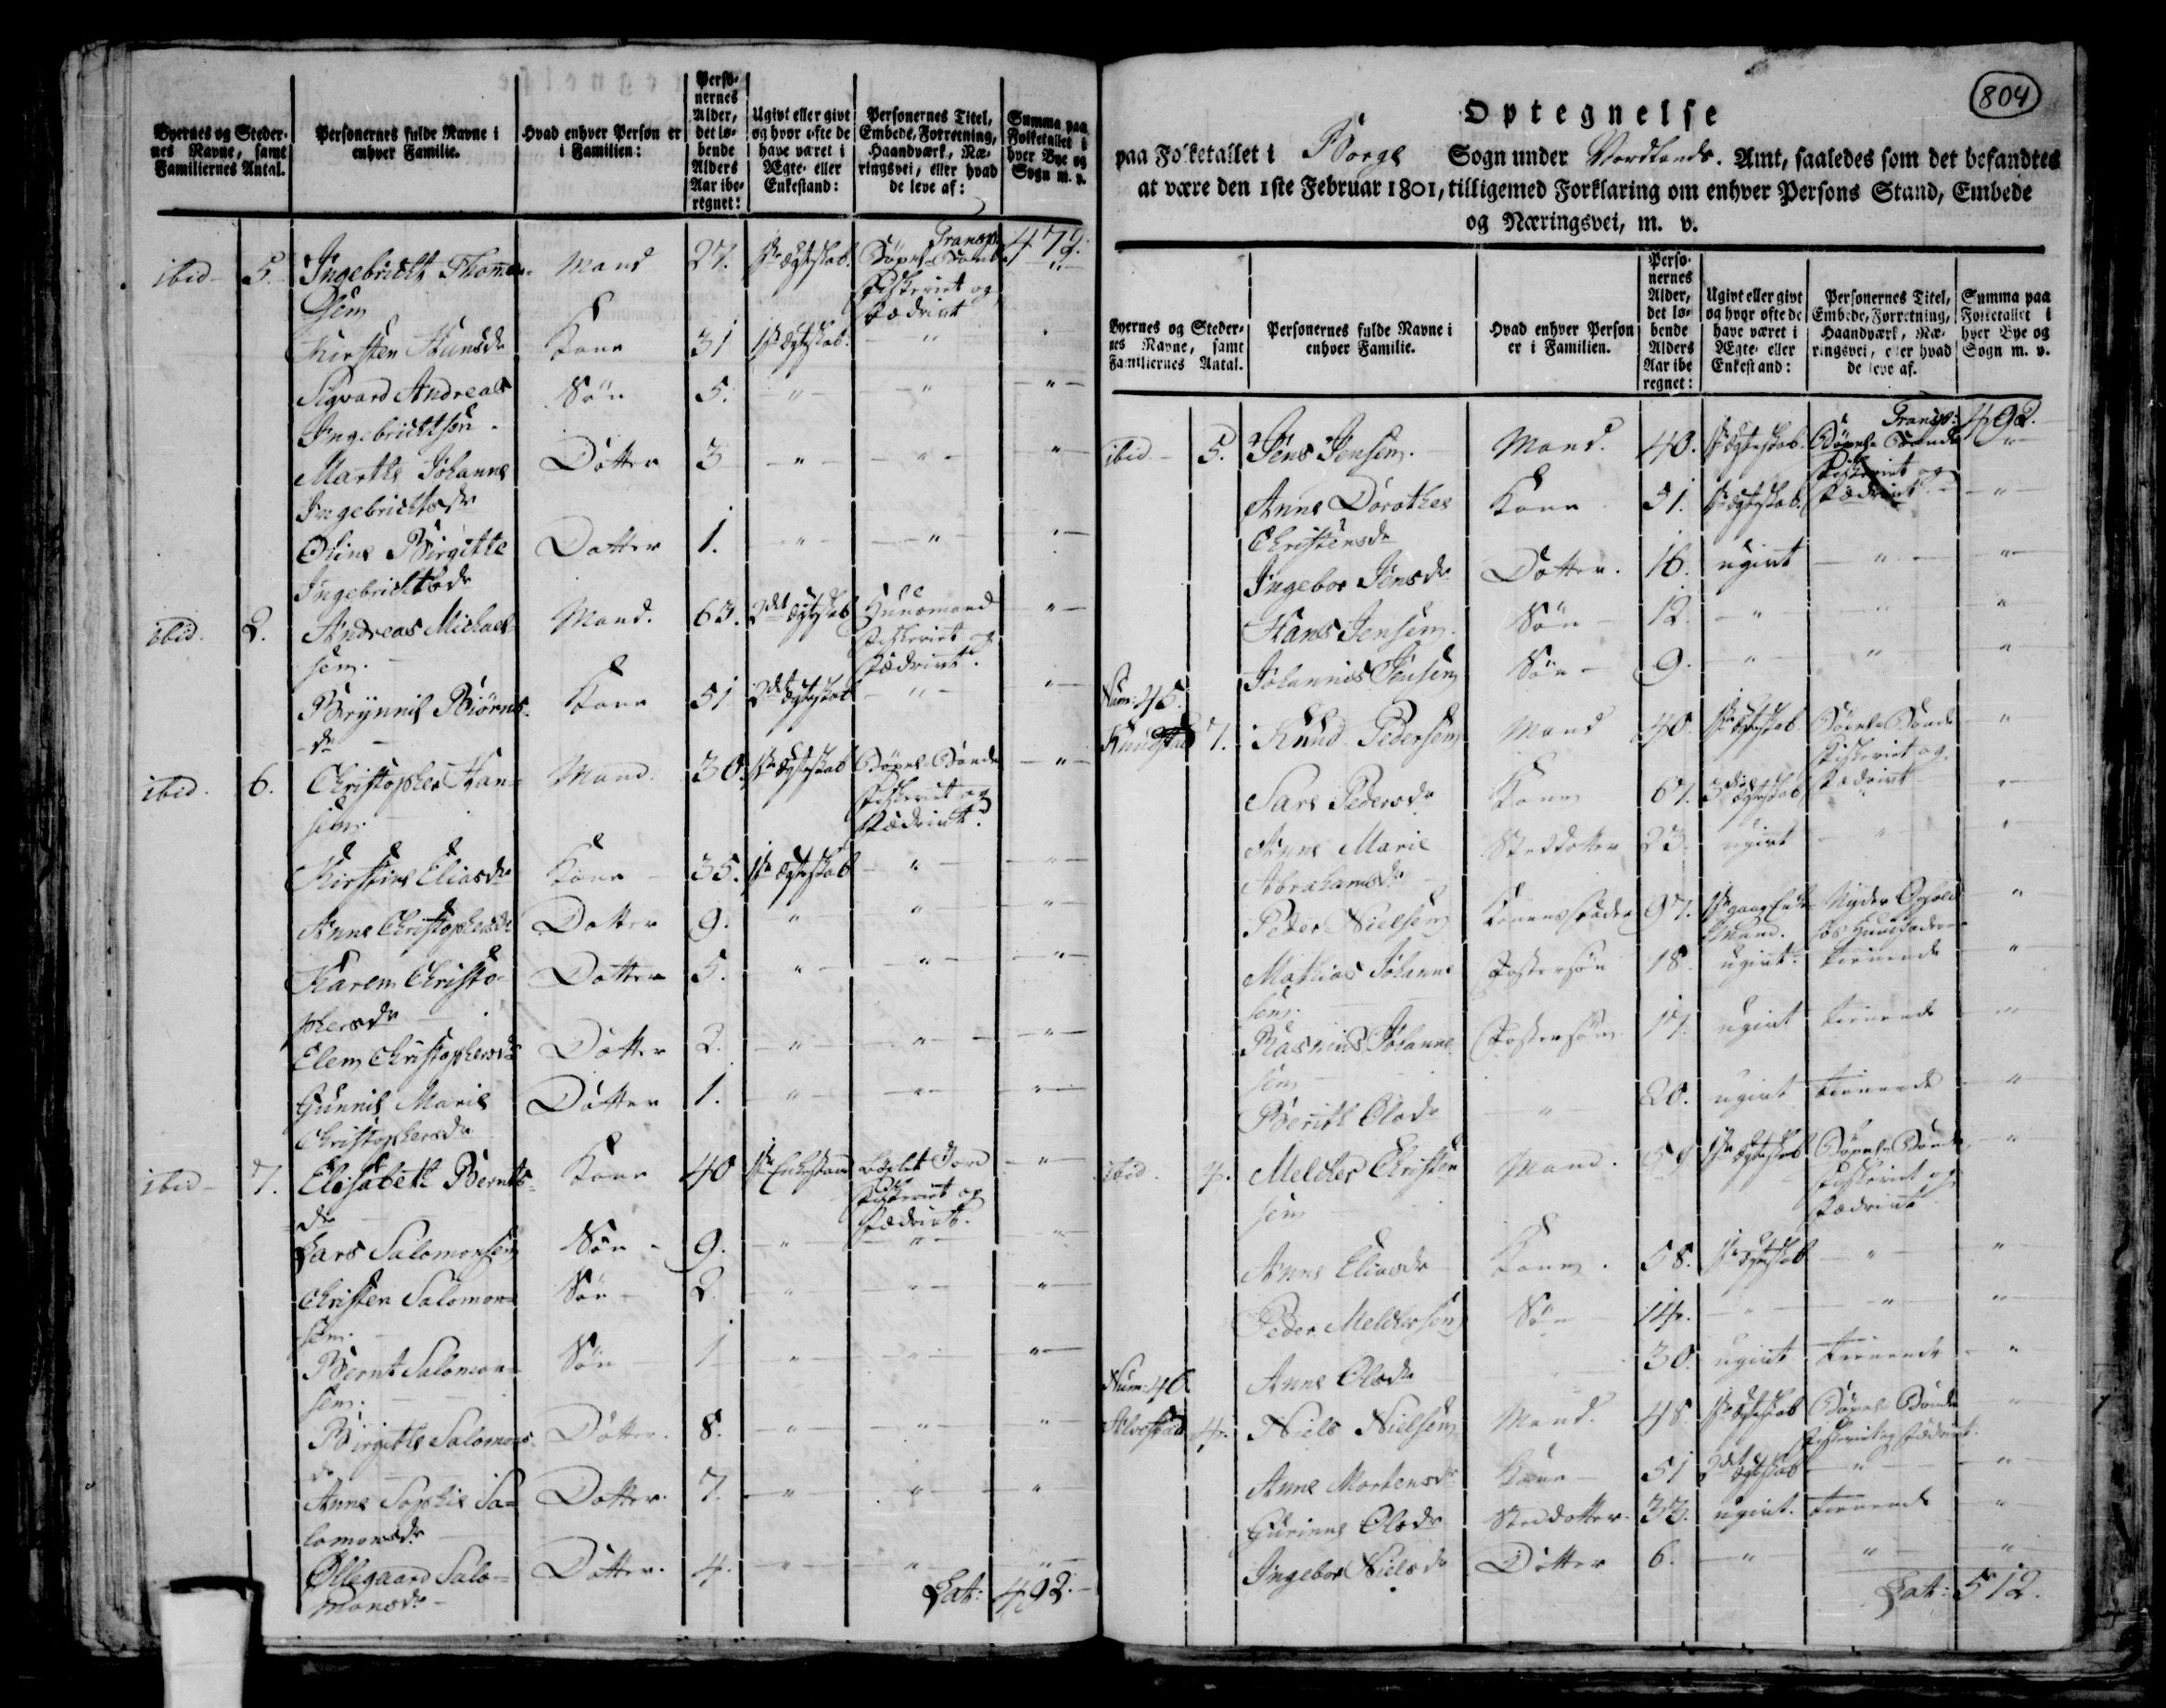 Byernes og Steder-
nes Navne, samt
Familiernes Antal.
Personernes fulde Navne i
enhver Familie.
Hvad enhver Person er
i Familien:
Perso-
nernes
Alder,
det lø-
bende
Alders
Aar ibe-
regnet:
Ugivt eller givt
og hvor ofte de
have været i
Ægte- eller
Enkestand:
Personernes Titel,
Embede, Forretning,
Haandværk, Næ-
ringsvei, eller hvad
de leve af:
Summa paa
Folketallet i
hver Bye og
Sogn m. v.
Transp: 472.
ibid- 5. Ingebricht Thoma- Mand 27. 1ste Ægteskab. Bøxel-Bonde "
sen Fiskeriet og
Fædrivt
Kirsten Hansdr Kone 31 1ste Ægteskab. "
Sigvard Andreas Søn 5. " " "
Ingebrichtsen.
Marthe Johanne Dotter 3 " " "
Ingebrichtsdr
Oline Birgitte Dotter 1. " " "
Ingebrichtsdr
ibid. 2. Andreas Michael- Mand. 63. 2det Ægteskab Huusmand "
sen. Fiskeriet og
Fædrivt.
Brynnil Biørns- Kone 51 2det Ægteskab " "
dr
ibid. 6. Christopher Han- Mand. 30. 1ste Ægteskab Bøxel-Bonde "
sen. Fiskeriet og
Fædrivt.
Kirstine Eliasdr Kone 35. 1ste Ægteskab " "
Anne Christophersdr Dotter 9. " " "
Karen Christo- Dotter 5. " " "
phersdr
Elen Christophersdr Dotter 2. " " "
Gunnil Marie Dotter 1. " " "
Christophersdr
ibid- 7. Elisabeth Bernts- Kone 40 1ste Enkestand Bøxlet Jord "
dr Fiskeriet og
Fædrivt.
Lars Salomonsen Søn 9. " " "
Christen Salomon- Søn 2. " " "
sen.
Bernt Salomon- Søn 1 " " "
sen.
Birgitte Salomons- Dotter. 8. " " "
dr
Anne Sophie Sa- Dotter. 7. " " "
lomonsdr
Øllegaard Salo- Dotter. 4. " " "
monsdr
Lat: 492.
804
Optegnelse
paa Folketallet i Borge Sogn under Nordlands. Amt, saaledes som det befandtes
at være den 1ste Februar 1801, tilligemed Forklaring om enhver Persons Stand, Embede
og Næringsvei, m. v.
Byernes og Steder-
nes Navne, samt
Familiernes Antal.
Personernes fulde Navne i
enhver Familie.
Hvad enhver Person
er i Familien.
Perso-
nernes
Alder,
det lø-
bende
Alders
Aar ibe
regnet:
Ugivt eller givt
og hvor ofte de
have været i
Ægte- eller
Enkestand:
Personernes Titel,
Embede, Forretning,
Haandværk, Næ-
ringsvei, eller hvad
de leve af.
Summa paa
Folketallet i
hver Bye og
Sogn m. v.
Transp: 492.
ibid- 5. Jens Jensen. Mand. 40. 1ste Ægteskab. Bøxel-Bonde "
Fiskeriet og
Anne Dorothea Kone 51. 1ste Ægteskab. Fædrivt. "
Christensdr
Ingebor Jensdr Dotter. 16. ugivt " "
Hans Jensen. Søn 12. " " "
Johannes Jensen Søn 9. " " "
Num: 45.
Knudstad 7. Knud Pedersen Mand 40. 1ste Ægteskab Bøxel-Bonde "
Fiskeriet og
Sare Pedersdr Kone 67. 3die Ægteskab Fædrivt "
Anne Marie Steddotter 23. ugivt " "
Abrahamsdr
Peder Nielsen Konens Fader 97. 1ste gang Enke- Nyder Ophold "
mand. hos Huusfader-
Mathias Johanne Fostersøn 18. ugivt tienende "
sen.
Rasmus Johanne Fostersøn 17. ugivt tienende "
sen
Berith Olsdr " 20. ugivt tienende "
ibid. 4. Melcher Christen Mand. 1ste Ægteskab Bøxel-Bonde "
sen Fiskeriet og
Fædrivt
Anne Eliasdr Kone. 58. 1ste Ægteskab " "
Peder Melchersen Søn 14. " " "
Anne Olsdr 30. ugivt tienende "
Num: 46
Alvestad 4. Niels Nielsen Mand. 48. 1ste Ægteskab Bøxel-Bonde "
Fiskeriet og Fædrivt.
Anne Mortensdr Kone 51 2det Ægteskab " "
Gurine Olsdr Steddotter. 33. ugivt. tienende "
Ingebor Nielsdr Dotter 6. " " "
Lat: 512.